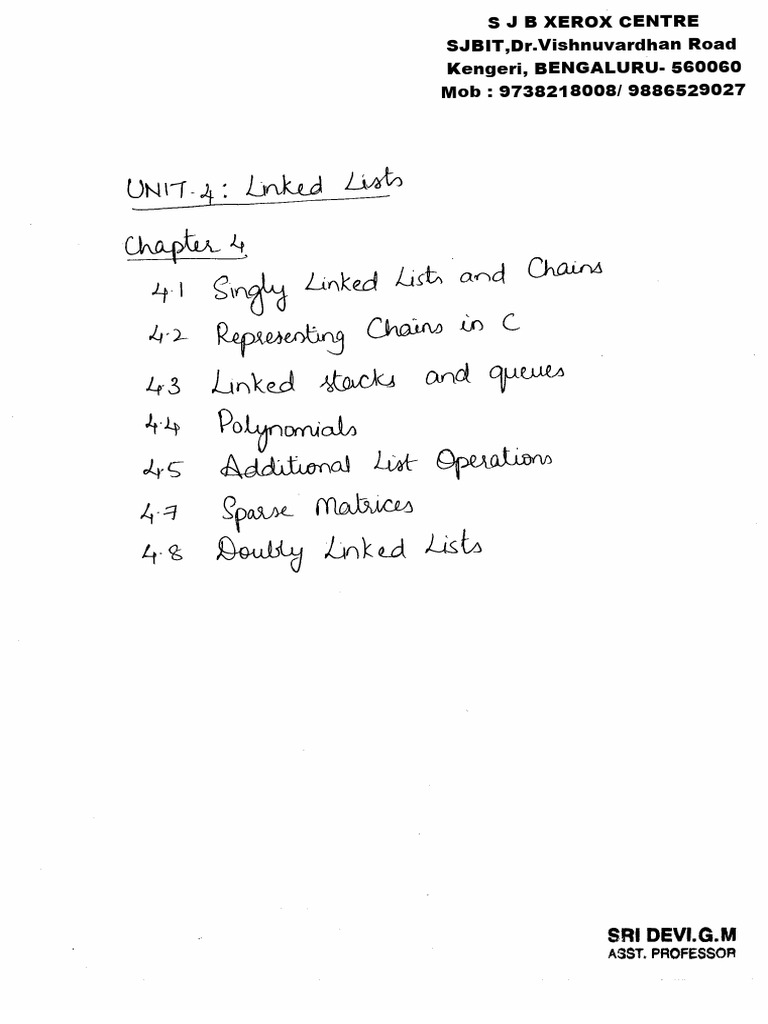 S J B XEROX CENTRE
SJBIT,Dr.Vishnuvardhan Road
Kengeri, BENGALURU- 560060
Mob : 9738218008/ 9886529027
UNIT-4: Linked Lists
Chapter 4
4.1 Singly Linked Lists and Chains
4.2 Representing Chains in C
4.3 Linked stacks and queues
4.4 Polynomials
4.5 Additional List Operations
4.7 Sparse Matrices
4.8 Doubly Linked Lists
SRI DEVI.G.M
ASST. PROFESSOR